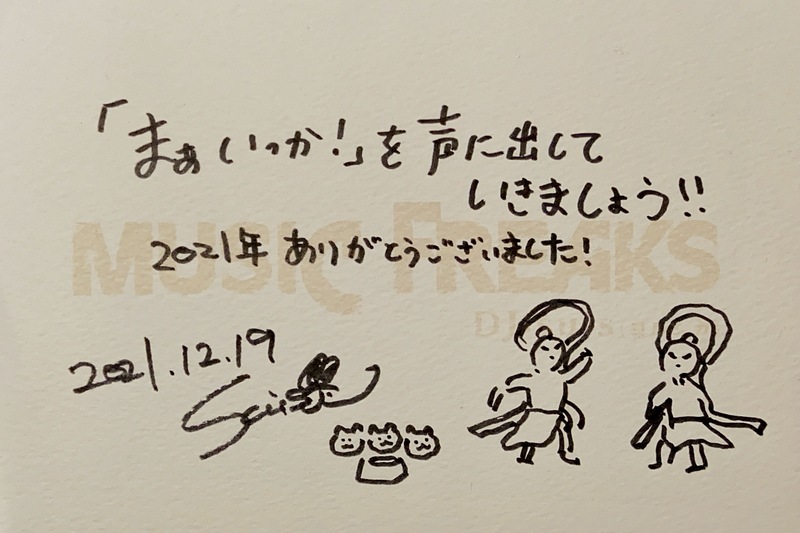 「まぁいっか!」を声に出して
いきましょう!!
MUSIC FREAKS
2021年 ありがとうございました!
2021.12.19